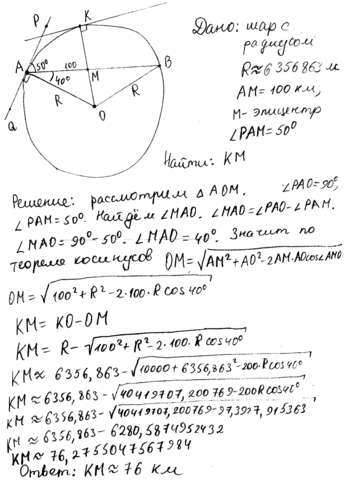 P
K
A
50°
100
B
40°
M
R
R
O
Q
Дано: шар с
радиусом
R≈6356863 м
AM = 100 км,
M - эпицентр
∠PAM = 50°
Найти: KM
Решение: рассмотрим △ AOM. ∠PAO = 90°,
∠PAM = 50°. Найдём ∠MAO. ∠MAO = ∠PAO - ∠PAM.
∠MAO = 90° - 50°. ∠MAO = 40°. Значит по
теореме косинусов OM = √AM² + AO² - 2AM·AO cos∠AMO
OM = √100² + R² - 2·100·R cos 40°
KM = KO - OM
KM = R - √100² + R² - 2·100·R cos 40°
KM ≈ 6356,863 - √10000 + 6356,863² - 200·R cos 40°
KM ≈ 6356,863 - √40419707,200769 - 200R cos 40°
KM ≈ 6356,863 - √40419707,200769 -
KM ≈ 6356,863 - 6280,5874952432
KM ≈ 76,2755047567984
Ответ: KM ≈ 76 км